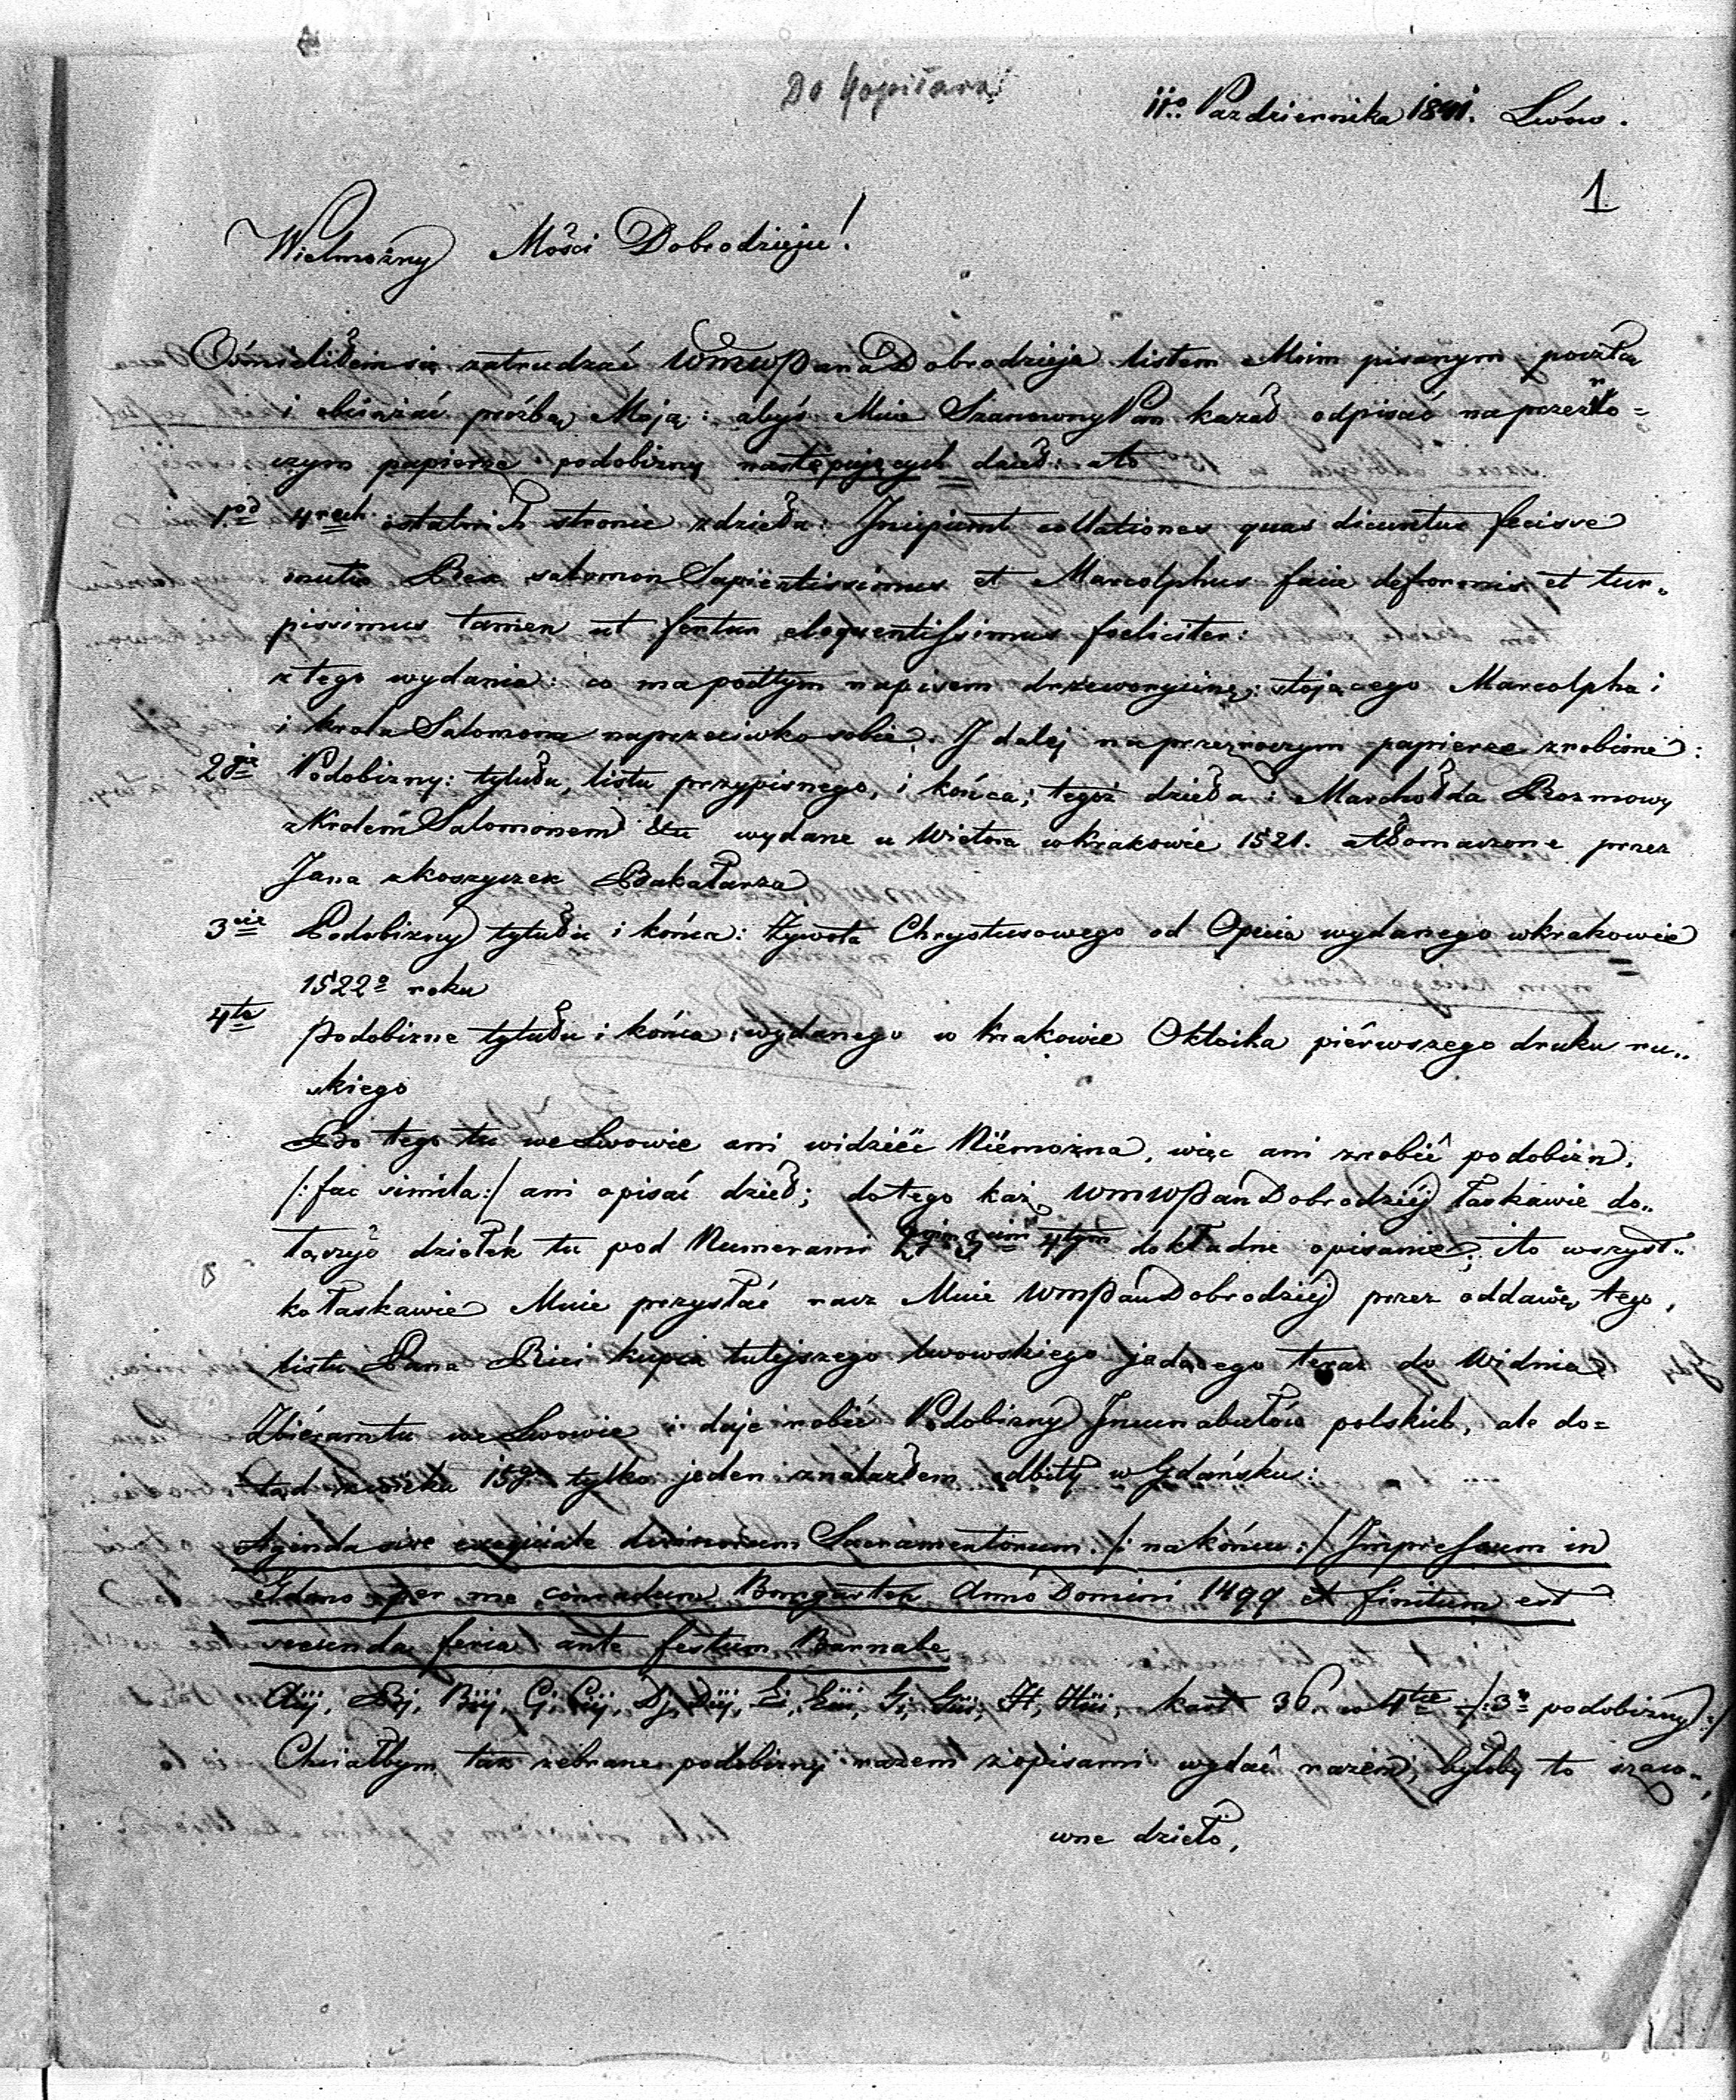 Do Kopitara
11go Pazdziernika 1841. Lwów.
1
Wielmożny Mości Dobrodzieju!
Ośmieliłem się zatrudzać WMWPana Dobrodzieja listem Moim pisanym pocztą
i obciążać proźbą Moją: abyś Mnie Szanowny Pan kazał odpisać na przezro=
czym papierze podobizny następujących dzieł: a to
1od 4rech ostatnich stronic z dzieła: Incipiunt collationes quas dicuntur fecisse
mutuo Rex salomon Sapientissimus et Marcolphus facie deformis et tur=
pissimus tamen ut fertur eloquentissimus foeliciter:
z tego wydania: co ma pod tym napisem drzeworycinę: stojącego Marcolpha i
i krola Salomona naprzeciwko sobie. I dalej na przezroczym papierze zrobione:
2gie Podobizny: tytułu, listu przypisnego, i końca; tegoż dzieła: Marchołda Rozmowy
z Krolem Salomonem etc wydane u Wietora w Krakowie 1521. a tłomaczone przez
Jana z Koszyczek Bakałarza
3cie Podobizny tytułu i końca: Żywota Chrystusowego od Opecia wydanego w krakowie
1522o roku
4te Podobizne tytułu i końca wydanego w Krakowie Oktoika pierwszego druku ru..
skiego
Bo tego tu we Lwowie ani widzieć Niemożna, więc ani zrobić podobizn,
/:fac simila:/ ani opisać dzieł; do tego każ WMWPan Dobrodziej łaskawie do..
łączyć dziełek tu pod Numerami 2gim 3cim 4tym dokładne opisanie; i to wszyst..
ko łaskawie Mnie przysłać racz Mnie WMPan Dobrodziej przez oddawcę tego,
listu Pana Rici kupca tutejszego lwowskiego jadącego teraz do Widnia
Zbieram tu we Lwowie i daje robić Podobizny Incunabułów polskich, ale do=
tąd z wieku 15go tylko jeden znalazłem odbity w Gdańsku:
Agenda sive exequiale divinorum Sacramentorum. /: na końcu:/ Impressum in
Gdano per me conradum Bomgarten Anno Domini 1499 et finitum est
secunda feria ante festum Barnabe
Aiij, Bj, Biij, Cj Ciij, Dj, Diij, E, Eiii, Gi, Giii, H, Hiii, kart 36 w 4tce /:3y podobizny:/
Chciałbym tak zebrane podobizny razem z opisami wydać razem, byłoby to szaco..
wne dzieło,